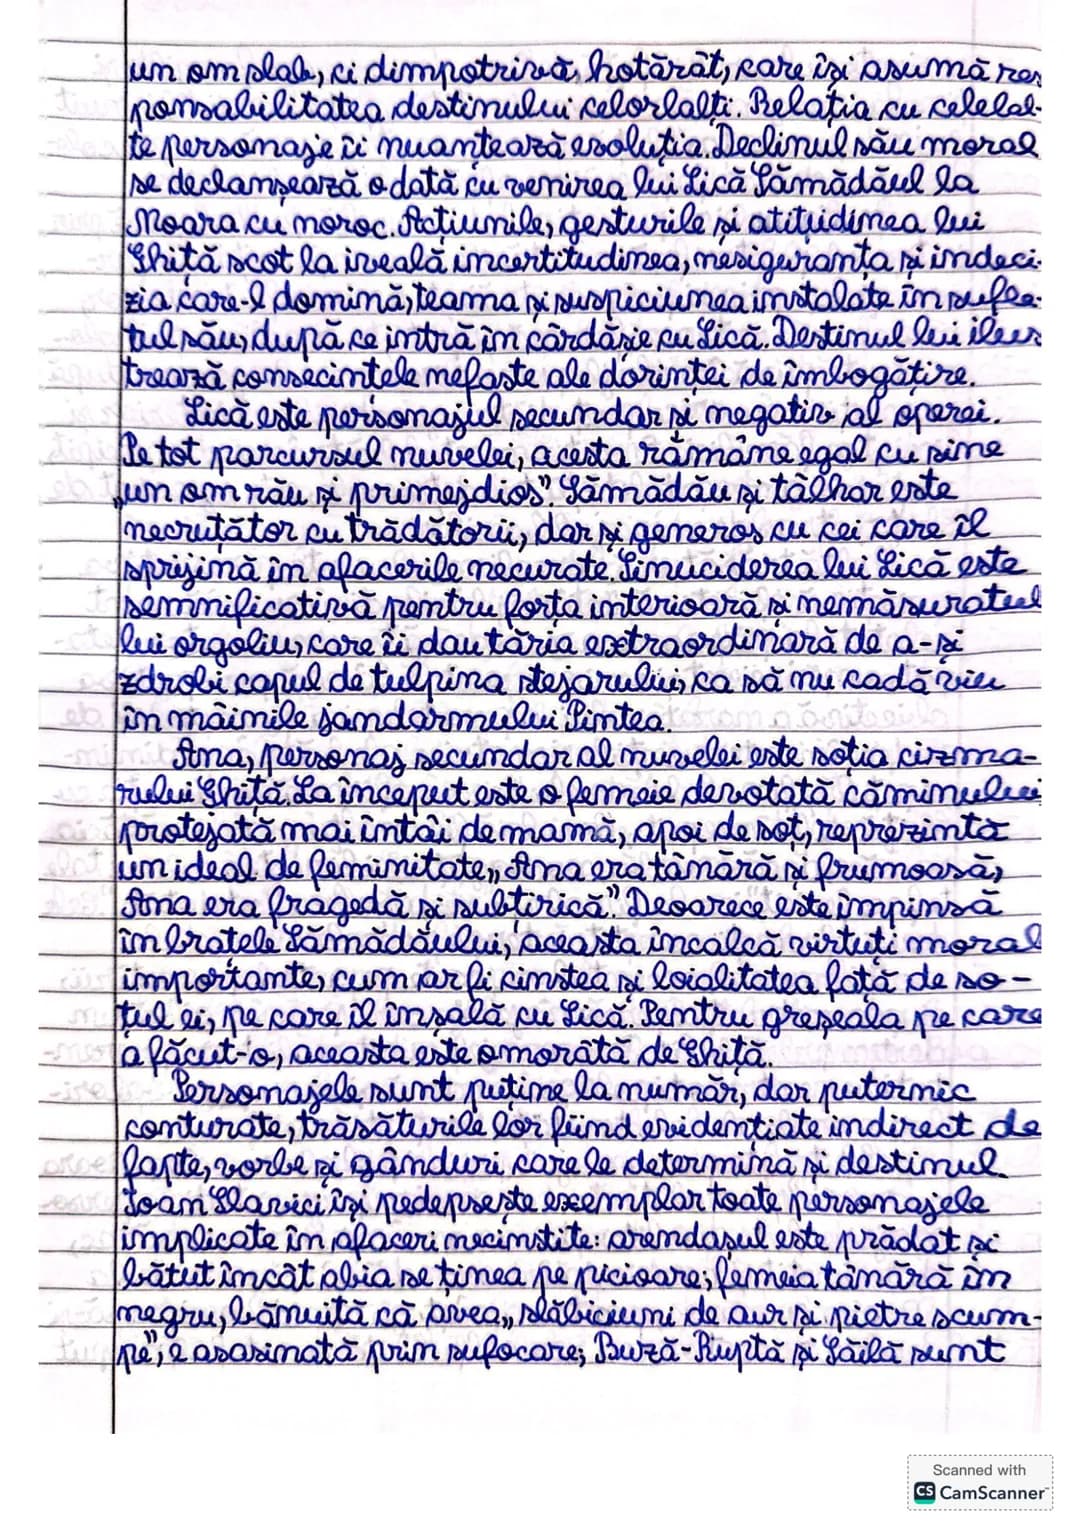 un om slab, ci dimpotrivă, hotărât, care își asumă res
ponsabilitatea destinului celorlalți. Relația cu celelal-
te personaje îi nuanțează evoluția. Declinul său moral
se declanșează odată cu venirea lui Lică Sămădăul la
Moara cu noroc. Acțiunile, gesturile și atitudinea lui
Ghiță scot la iveală incertitudinea, nesiguranța și indeci-
zia care-l domină, teama și suspiciunea instalate în sufle-
tul său, după ce intră în cârdășie cu Lică. Destinul lui ilus
trează consecințele nefaste ale dorinței de îmbogățire.
Lică este personajul secundar și negativ al operei.
Pe tot parcursul nuvelei, acesta rămâne egal cu sine
„un om rău și primejdios”. Sămădău și tâlhar este
necruțător cu trădătorii, dar și generos cu cei care îl
sprijină în afacerile necurate. Sinuciderea lui Lică este
semnificativă pentru forța interioară și nemăsuratul
lui orgoliu, care îi dau tăria extraordinară de a-și
zdrobi capul de tulpina stejarului, ca să nu cadă viu
în mâinile jandarmului Pintea.
Ana, personaj secundar al nuvelei este soția cizma-
rului Ghiță. La început este o femeie devotată căminului
protejată mai întâi de mamă, apoi de soț, reprezintă
un ideal de feminitate „Ana era tânără și frumoasă,
Ana era fragedă și subțirică”. Deoarece este împinsă
în brațele Sămădăului, aceasta încalcă virtuți moral
importante, cum ar fi cinstea și loialitatea față de so-
țul ei, pe care îl înșală cu Lică. Pentru greșeala pe care
a făcut-o, aceasta este omorâtă de Ghiță.
Personajele sunt puține la număr, dar puternic
conturate, trăsăturile lor fiind evidențiate indirect de
fapte, vorbe și gânduri care le determină și destinul
Ioan Slavici își pedepsește exemplar toate personajele
implicate în afaceri necinstite: arendașul este prădat și
bătut încât abia se ținea pe picioare; femeia tânără în
negru, bănuită că avea „slăbiciuni de aur și pietre scum-
pe”, e asasinată prin sufocare; Buză-Ruptă și Săilă sunt
Scanned with
CS CamScanner